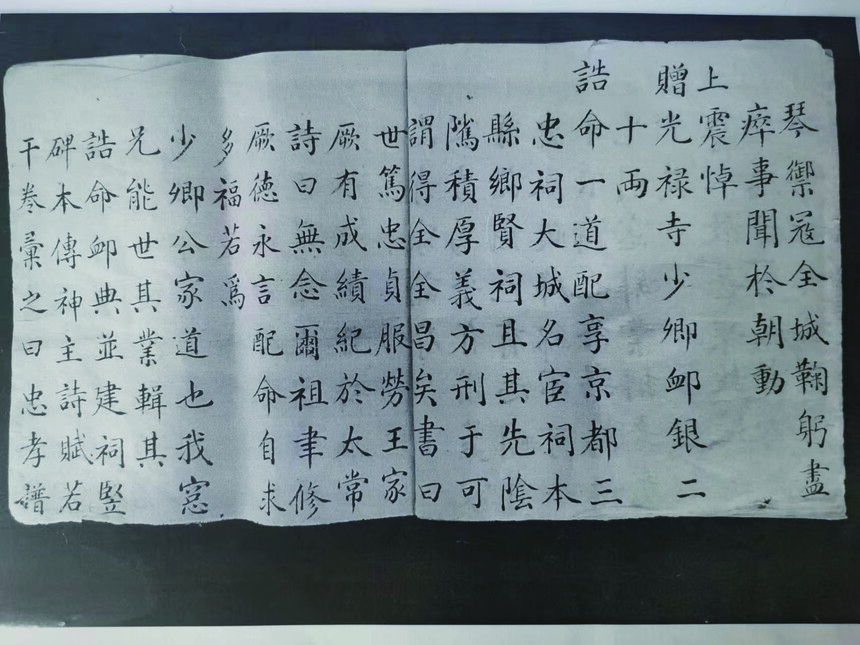 琴禦冦全城鞠躬盡
瘁事聞於朝動
上震悼
贈光禄寺少卿卹銀二
十両
誥命一道配享京都三
忠祠大城名宦祠本
縣鄉賢祠且其先陰
隲積厚義方刑于可
謂得全全昌矣書曰
世篤忠貞服勞王家
厥有成績紀於太常
詩曰無念爾祖聿修
厥德永言配命自求
多福若爲
少卿公家道也我窻
兄能世其業輯其
誥命卹典並建祠竪
碑本傳神主詩賦若
干卷彙之曰忠孝譜